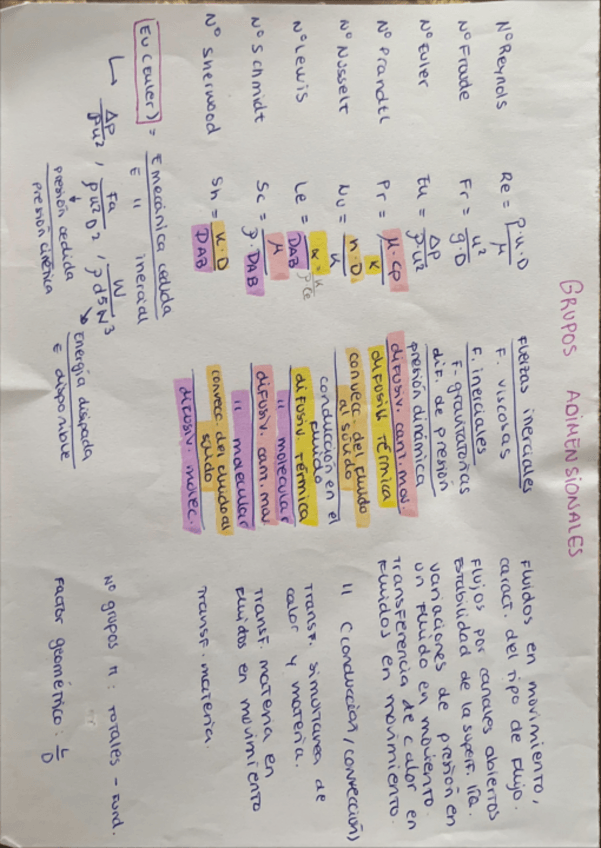 GRUPOS ADIMENSIONALES
Nº Reynols Re = ρ·u·D / μ Fuerzas inerciales / F. viscosas Fluidos en movimiento, caract. del tipo de flujo.
Nº Fraude Fr = u² / g·D F. inerciales / F. gravitatorias Flujos por canales abiertos Estabilidad de la superf. liq.
Nº Euler Eu = ΔP / ρ·u² dif. de presión / presión dinámica variaciones de presión en un fluido en moviento.
Nº Prandtl Pr = μ·Cp / k difusiv. cant. mov. / difusiv. térmica Transferencia de calor en fluidos en movimiento.
Nº Nusselt Nu = h·D / k convecc. del fluido al sólido / conducción en el fluido " (conducción/convección)
Nº Lewis Le = α = k / ρ Ce / DAB difusiv. térmica / " molecular Transf. simultanea de calor y materia.
Nº Schmidt Sc = μ / ρ·DAB difusiv. cant. mov / " molecular Transf. materia en fluidos en movimiento
Nº Sherwood Sh = K·D / DAB convecc. del fluido al sólido / difusiv. molec. Transf. materia.
Eu (Euler) = E mecánica cedida / E " inercial
↳ ΔP / ρu² , Fa / ρu²D² , W / ρd⁵N³ Nº grupos π : totales - Fund.
presión cedida / presión cinética Energía disipada / E disponible Factor geométrico : L / D